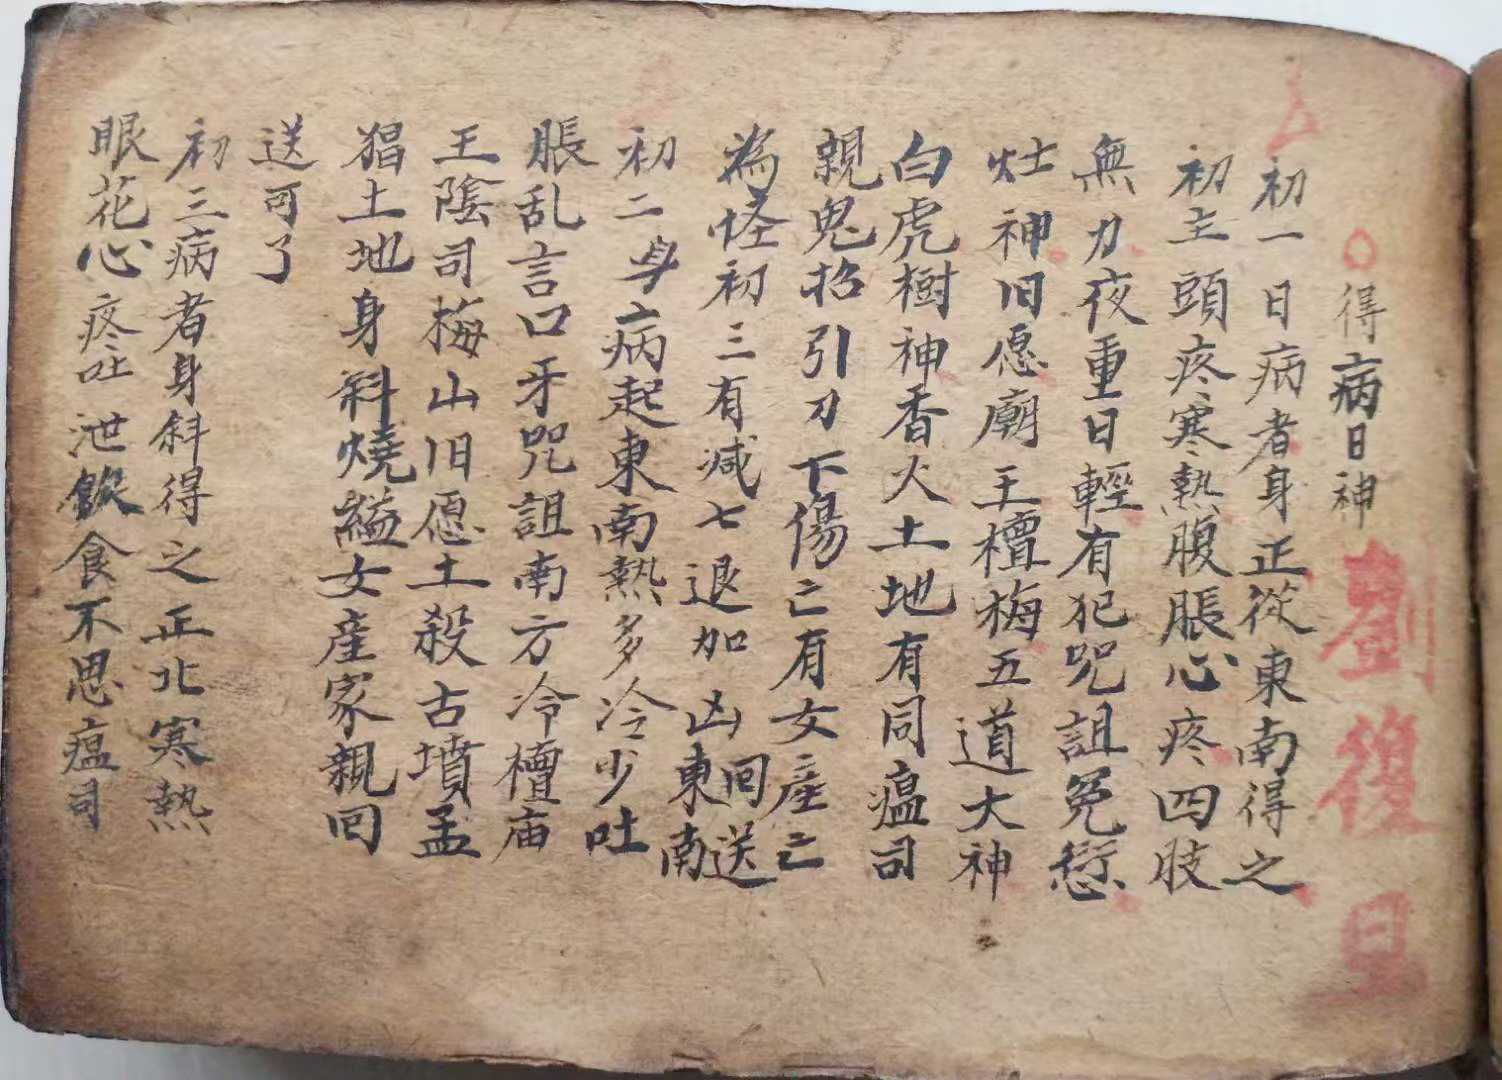 得病日神
劉復旦
初一日病者身正從東南得之
初主頭疼寒熱腹脹心疼四肢
無力夜重日輕有犯咒詛冤愆
灶神旧愿廟王檀梅五道大神
白虎樹神香火土地有同瘟司
親鬼招引刀下傷亡有女産亡
為怪初三有减七退加凶東南回送
初二身病起東南熱多冷少吐
脹乱言口牙咒詛南方冷檀庙
王陰司梅山旧愿土殺古墳孟
猖土地身斜燒縊女産家親回
送可了
初三病者身斜得之正北寒熱
眼花心疼吐泄飲食不思瘟司